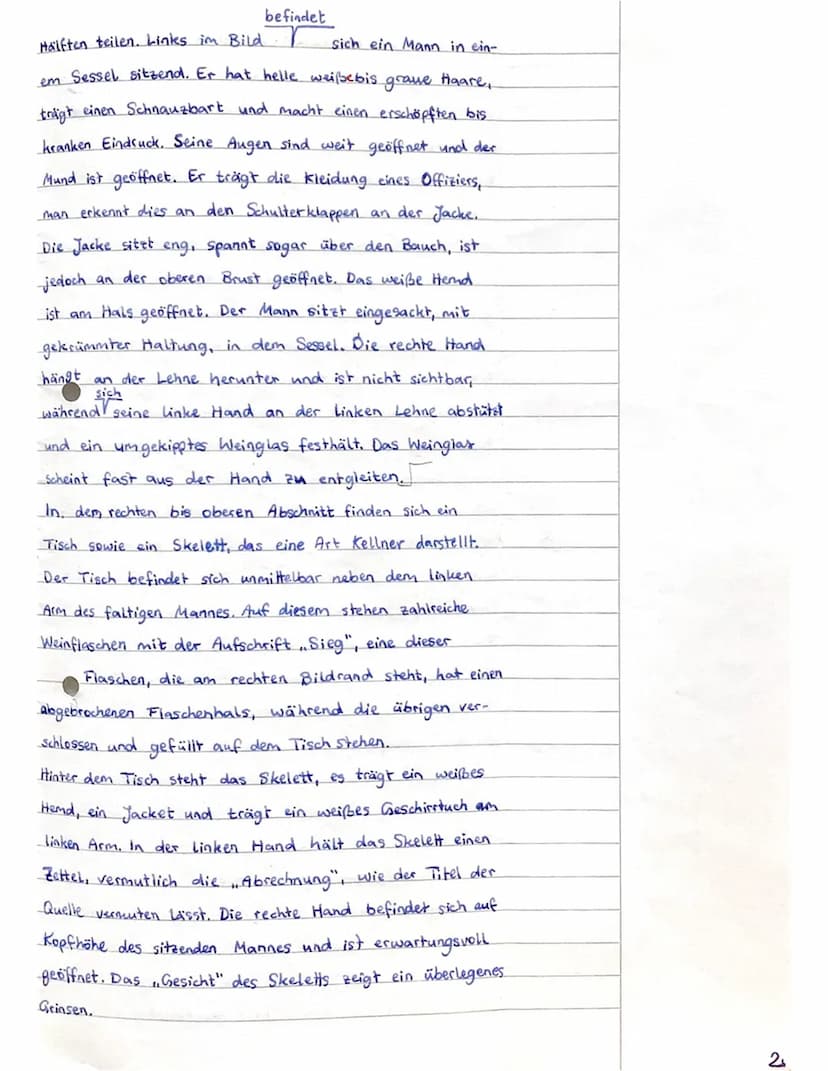 befindet
Hälften teilen. Links im Bild sich ein Mann in ein-
em Sessel sitzend. Er hat helle weiße bis graue Haare,
trägt einen Schnauzbart und macht einen erschöpften bis
kranken Eindruck. Seine Augen sind weit geöffnet und der
Mund ist geöffnet. Er trägt die Kleidung eines Offiziers,
man erkennt dies an den Schulterklappen an der Jacke.
Die Jacke sitzt eng, spannt sogar über den Bauch, ist
jedoch an der oberen Brust geöffnet. Das weiße Hemd
ist am Hals geöffnet. Der Mann sitzt eingesackt, mit
gekrümmter Haltung, in dem Sessel. Die rechte Hand
hängt an der Lehne herunter und ist nicht sichtbar,
sich
während seine linke Hand an der linken Lehne abstützt
und ein umgekipptes Weinglas festhält. Das Weinglas
scheint fast aus der Hand zu entgleiten.
In dem rechten bis oberen Abschnitt finden sich ein
Tisch sowie ein Skelett, das eine Art Kellner darstellt.
Der Tisch befindet sich unmittelbar neben dem linken
Arm des faltigen Mannes. Auf diesem stehen zahlreiche
Weinflaschen mit der Aufschrift „Sieg", eine dieser
Flaschen, die am rechten Bildrand steht, hat einen
abgebrochenen Flaschenhals, während die übrigen ver-
schlossen und gefüllt auf dem Tisch stehen.
Hinter dem Tisch steht das Skelett, es trägt ein weißes
Hemd, ein Jacket und trägt ein weißes Geschirrtuch am
linken Arm. In der linken Hand hält das Skelett einen
Zettel, vermutlich die „Abrechnung", wie der Titel der
Quelle vermuten lässt. Die rechte Hand befindet sich auf
Kopfhöhe des sitzenden Mannes und ist erwartungsvoll
geöffnet. Das „Gesicht" des Skeletts zeigt ein überlegenes
Grinsen.
2